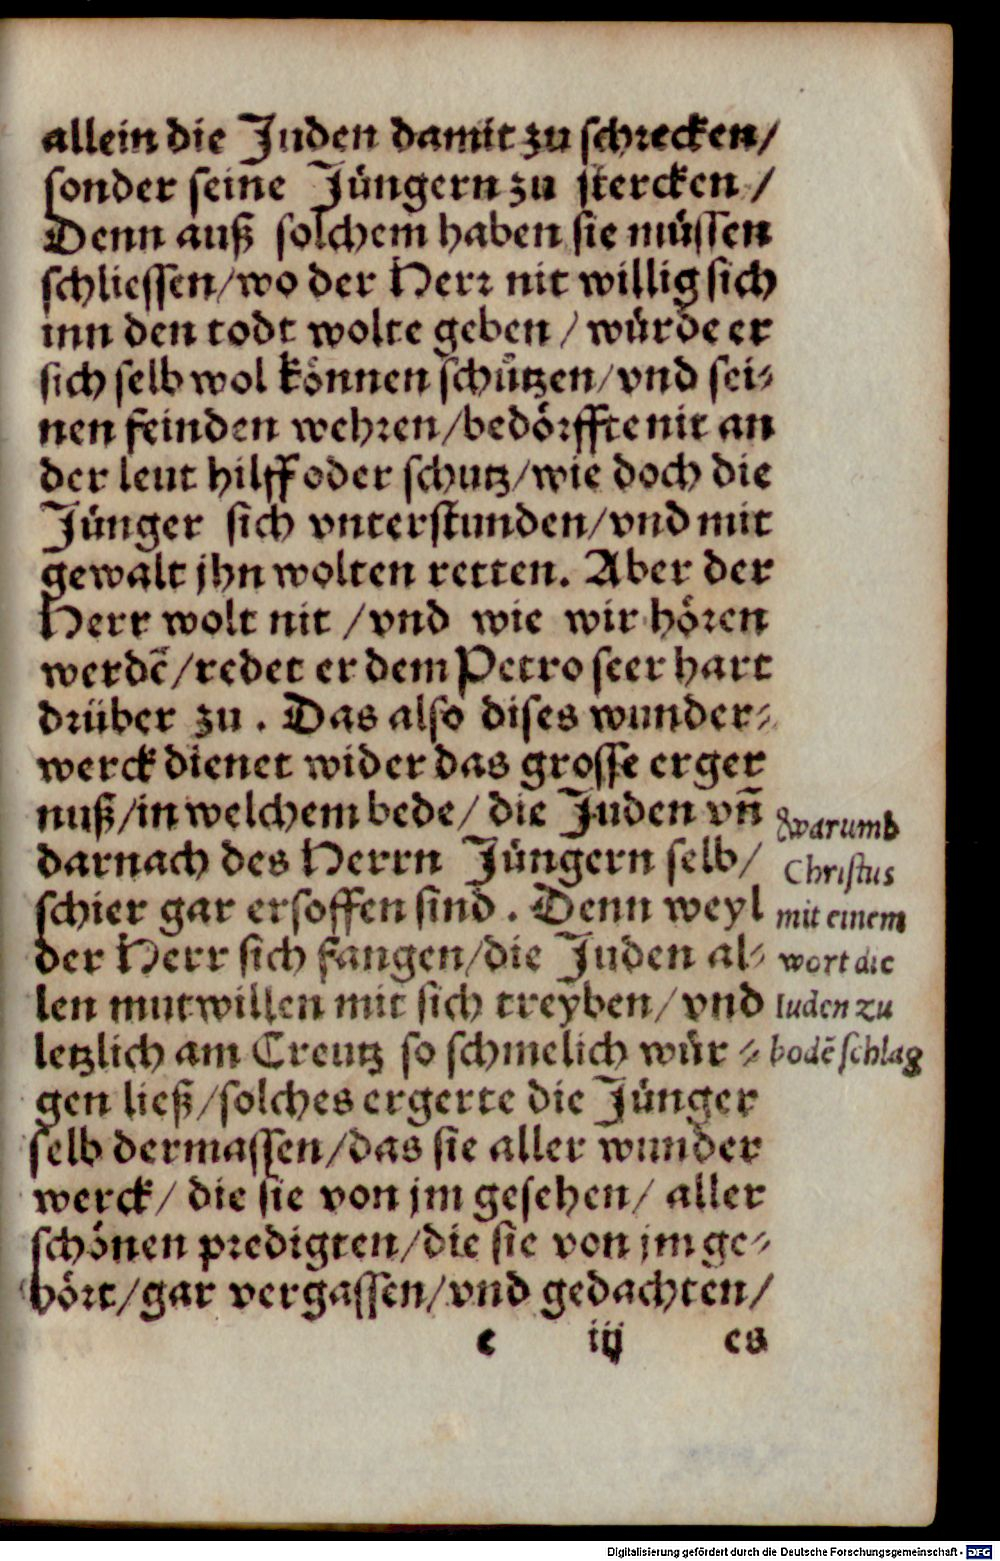 allein die Juden damit zu schrecken/
sonder seine Jüngern zu stercken /
Denn auß solchem haben sie müssen
schliessen/wo der Herr nit willig sich
inn den todt wolte geben / würde er
sich selb wol können schützen/vnd sei⸗
nen feinden wehren/bedörffte nit an
der leut hilff oder schutz/wie doch die
Jünger sich vnterstunden/vnd mit
gewalt jhn wolten retten. Aber der
Herr wolt nit /vnd wie wir hören
werdẽ/redet er dem Petro seer hart
drüber zu . Das also dises wunder⸗
werck dienet wider das grosse erger
nuß/in welchem bede/ die Juden vñ
darnach des Herrn Jüngern selb/
schier gar ersoffen sind . Denn weyl
der Herr sich fangen/die Juden al⸗
len mutwillen mit sich treyben/ vnd
letzlich am Creutz so schmelich wür ⸗
gen ließ/solches ergerte die Jünger
selb dermassen/das sie aller wunder
werck/ die sie von jm gesehen/ aller
schönen predigten/die sie von jm ge⸗
hört/gar vergassen/vnd gedachten/
e iij es
warumb
Christus
mit einem
wort die
Iuden zu
bodẽ schlag
Digitalisierung gefördert durch die Deutsche Forschungsgemeinschaft - DFG